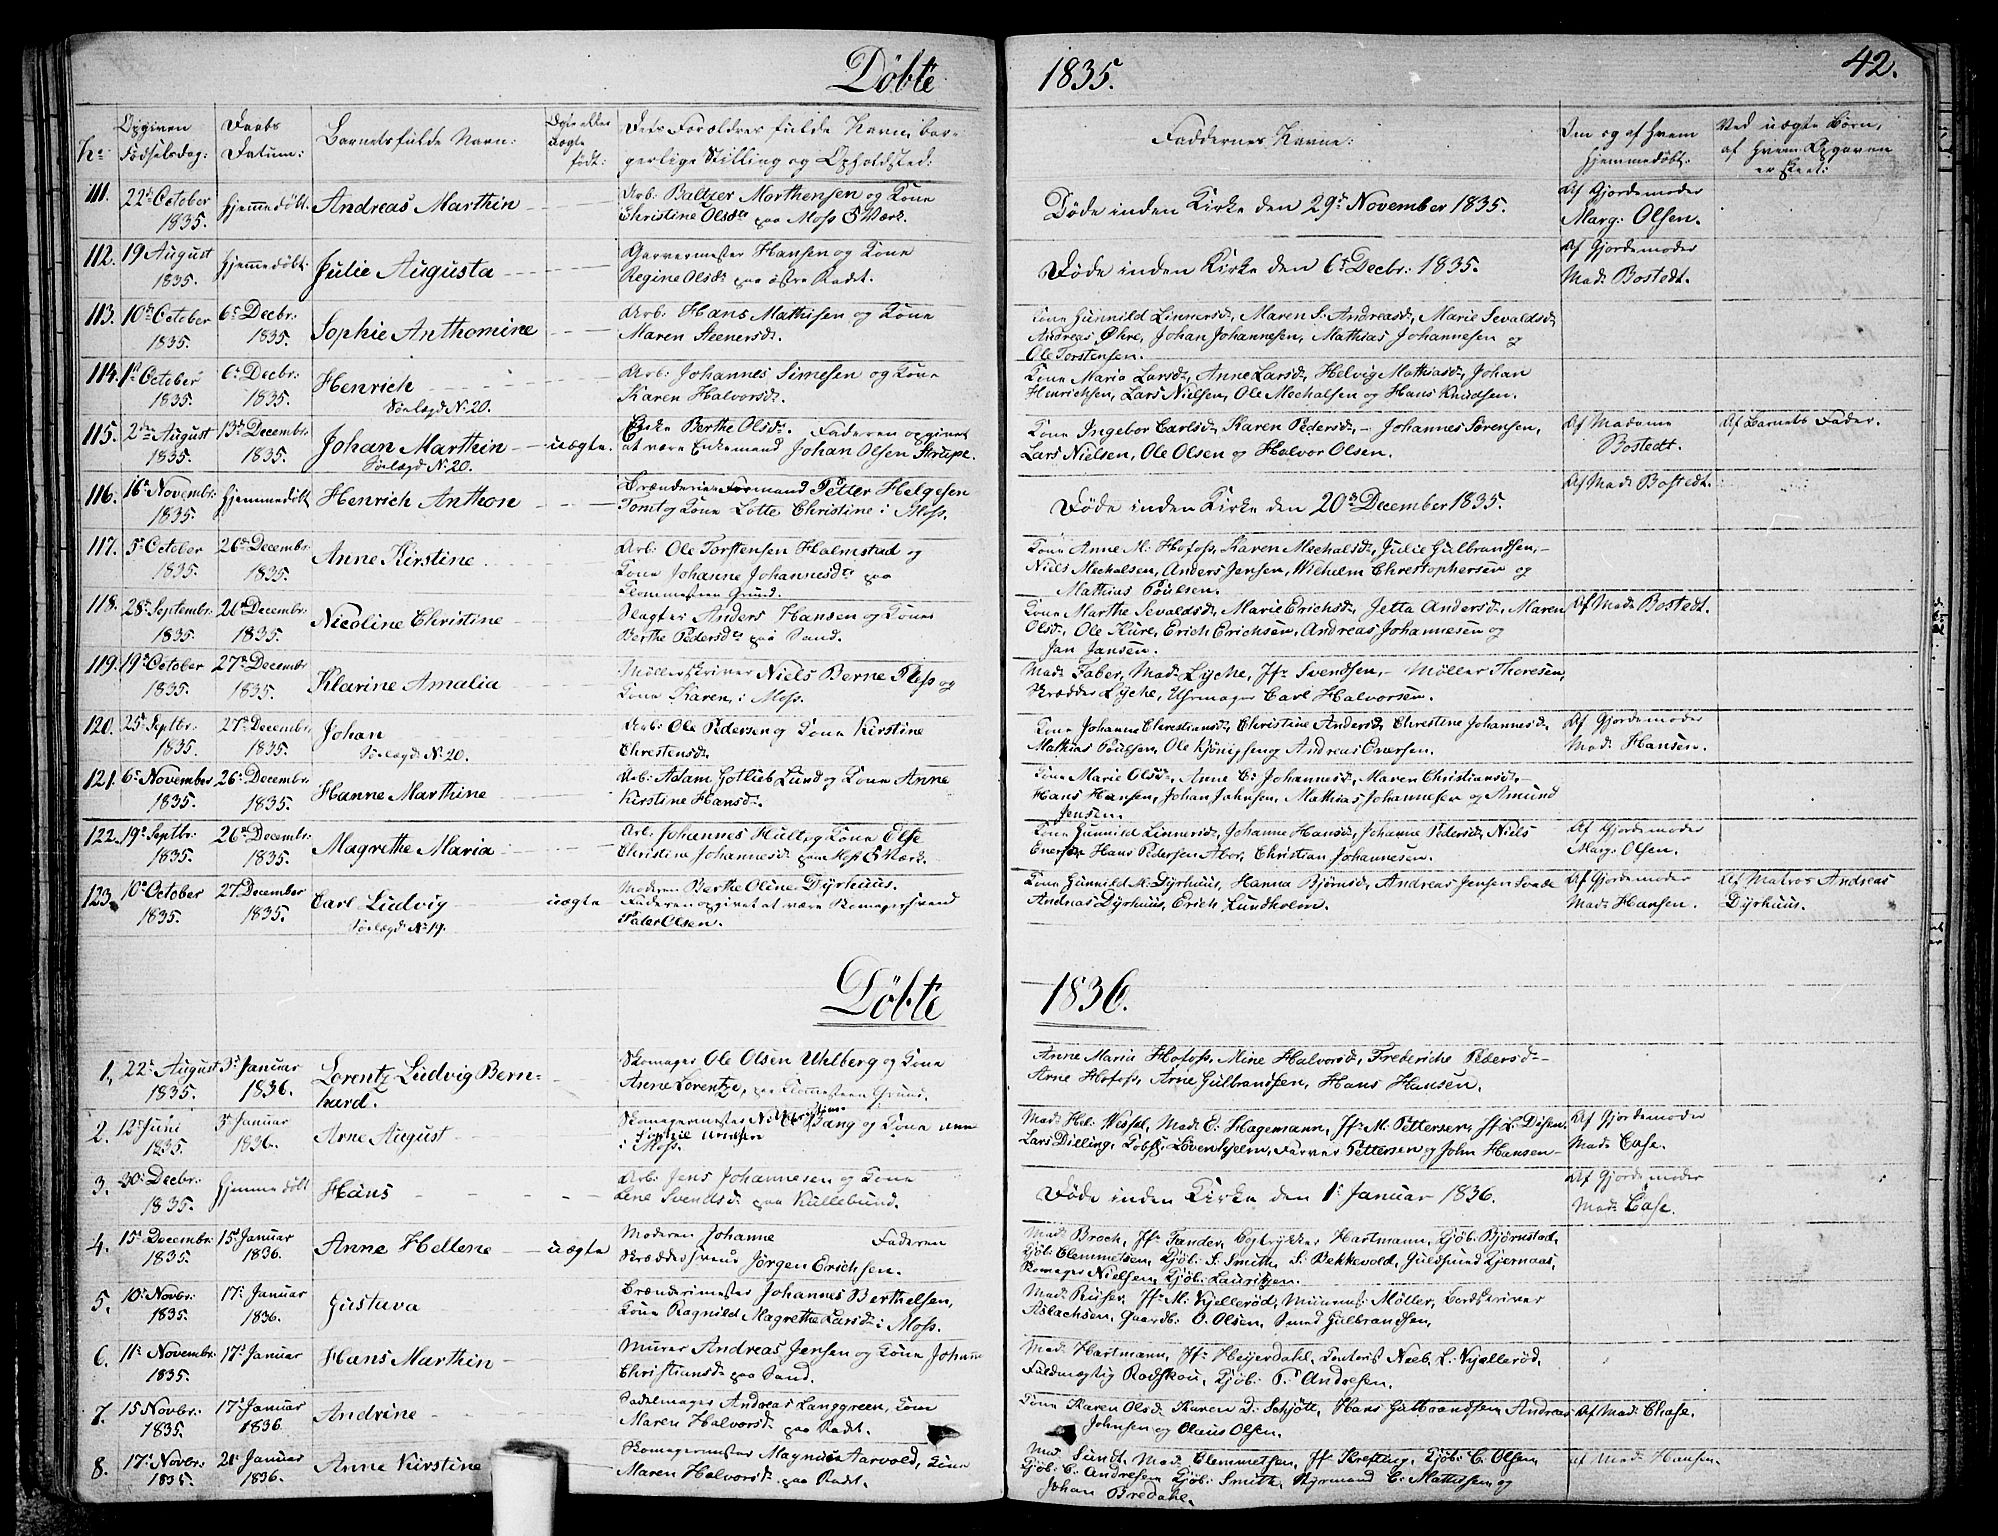 Döbte 1835. 42.
No Opgiven Fødselsdag: Daabs Datum: Barnets fulde Navn: Ægte eller Uægte født: Dets Forældres fulde Navn, borgerlige Stilling og Opholdsted: Faddernes Navne: Om og af Hvem hjemmedøbt: Ved uægte Børn, af Hvem Opgaven er skeet:
111. 22de October 1835. hjemmedöbt Andreas Marthin Arb: Baltzer Morthensen og Kone Christine Olsdr paa Moss Værk. Døde inden Kirke den 29de November 1835. Af Gjordemoder Marg: Olsen.
112. 19 August 1835. hjemmedöbt: Julie Augusta Garvermester Hansen og Kone Regine Olsdr paa østre Kadet. Døde inden Kirke den 6te Decbr: 1835. Af Gjordemoder Mad: Bostedt.
113. 10de October 1835. 6te Decbr: 1835. Sophie Anthomine Arb: Hans Mathisen og Kone Maren Steenersdr. Kone Gunnild Linnersdr, Maren S. Andreasdr, Marie Sevaldsdr
Andreas Øhre, Johan Johannesen, Mathias Johannesen og
Ole Torstensen.
114. 1ste October 1835. 6te Decbr: 1835. Henrich Sövlægd No 20. Arb: Johannes Simesen og Kone Karen Halvorsdr. Kone Maria Larsdr, Anne Larsdr, Helvig Mathiasdr, Johan
Henrichsen, Lars Nielsen, Ole Mechalsen og Hans Knudsen.
115. 2den August 1835. 13de Decembr: 1835. Johan Marthin Sövlægd No 20. uægte. Enke Berthe Olsdr. Faderen opgivet at være Enkemand Johan Olsen Strupe. Kone Ingebor Carlsdr, Karen Pedersdr, Johannes Sörensen,
Lars Nielsen, Ole Olsen og Halvor Olsen. Af Madame Bostedt. Af Barnets Fader.
116. 16de Novembr: 1835. hjemmedöbt Henrich Anthon Brænderie Formand Petter Helgesen Tomt og Kone Lotte Christine i Moss. Døde inden Kirke den 20de December 1835. Af Mad: Bostedt.
117. 5te October 1835. 26de Decembr: 1835. Anne Kirstine Arb: Ole Torstensen Halmstad og Kone Johanne Johannesdr paa Blommesteen Grund. Kone Anne M. Hofoss, Karen Mechalsdr, Julie Gulbrandsen,
Niels Mechalsen, Anders Jensen, Wilhelm Christophersen og
Mathias Poulsen.
118. 28de Septembr: 1835. 26de Decembr: 1835. Nicoline Christine Slagter Anders Hansen og Kone Berthe Pedersdr paa Sand. Kone Marthe Sevaldsdr, Marie Erichsdr, Jetta Andersdr, Maren
Olsdr, Ole Kure, Erich Erichsen, Andreas Johannesen og
Jan Jansen. Af Mad: Bostedt.
119. 19de October 1835. 27de Decembr: 1835. Klarine Amalia Möllerskriver Niels Berne Pless og Kone Karen, i Moss. Mad: Faber, Mad: Lyche, Jfr Svendsen, Möller Thoresen,
Skrædder Lyche, Uhrmager Carl Halvorsen.
120. 25de Septbr: 1835. 27de Decembr: 1835. Johan Sövlægd No 20. Arb: Ole Pedersen og Kone Kirstine Christensdr. Kone Johanne Christiansdr, Christine Andersdr, Christine Johannesdr
Mathias Poulsen, Ole Kjönigsen og Andreas Enersen. Af Gjordemoder Mad: Hansen.
121. 6te November 1835. 26de Decembr: 1835. Hanne Marthine Arb: Adam Gotlieb Lund og Kone Anne Kirstine Hansdr. Kone Marie Olsdr, Anne C: Johannesdr, Maren Christiansdr,
Hans Hansen, Johan Johnsen, Mathias Johannesen og Amund
Jensen.
122. 19de Septbr: 1835. 26de Decembr: 1835. Magrethe Maria Arb: Johannes Hult og Kone Else Christine Johannesdr paa Moss Værk. Kone Gunnild Linnersdr, Johanne Hansdr, Johanne Pedersdr, Niels
Enersen Hans Pedersen Abor, Christian Johannesen. Af Gjordemoder Marg: Olsen.
123. 10de October 1835. 27 December 1835. Carl Ludvig Sövlægd No 19. uægte Moderen Berthe Oline Dyrhuus. Faderen opgivet at være Skomagersvend Peter Olsen. Kone Gunnild M: Dyrhuus, Hanna Björnsdr, Andreas Jensen
Andreas Dyrhuus, Erich Lundholm. Af Gjordemoder Mad: Hansen. Af Matros Andreas Dyrhuus.
Döbte 1836.
1. 22de August 1835. 3die Januar 1836. Lorentz Ludvig Bernhard. Skomager Ole Olsen Uhlberg og Kone Anne Lorentze, paa Blommesteen Grund. Anne Maria Hofoss, Mine Halvorsdr, Frederiche Pedersdr
Arne Hofoss, Arne Gulbrandsen, Hans Hansen.
2. 12te Juni 1835. 3die Januar 1836. Arne August Skomagermester N: Christian Bang og Kone Anne Sophie i Moss. Mad: Hel: Wessel, Mad: E. Hagemann, Jfr M. Pettersen, Jfr L. Disen,
Lars Dilling, Lövenhjelm, Farver Pettersen og John Hansen Af Gjordemoder Mad: Case.
3. 30te Decbr: 1835. hjemmedöbt Hans Arb: Jens Johannesen og Kone Lene Svendsdr paa Kullebund. Døde inden Kirke den 1ste Januar 1836. Af Gjordemoder Mad: Case.
4. 15de Decembr: 1835. 15de Januar 1836. Anne Hellene uægte Moderen Johanne Faderen Skræddersvend Jörgen Erichsen. Mad: Broch, Jfr Sander, Bogtrykker Hartmann, Kjöb: Björnstad,
Kjöb: Clemmetsen, Kjöb: S. Smith, S. Bekkevold, Guldsmed Kjernaas,
Skomager Nielsen, Kjöb: Lauritzen.
5. 10de Novbr: 1835. 17de Januar 1836. Gustava Brænderimester Johannes Berthelsen, Kone Ragnild Magrethe Larsdr i Moss. Mad: Riiser, Jfr M: Kjellerød, Muurmest: Möller, Bordskriver
Aslachsen, Gaardb: O. Olsen, Smed Gulbrandsen,
6. 11te Novembr: 1835. 17de Januar Hans Marthin Murer Andreas Jensen og Kone Johanne Christiansdr paa Sand. Mad: Hartmann, Jfr Heyerdahl, Neeb, L: Kjellerød,
Fuldmægtig Rodskou, Kjöb: P: Andresen.
7. 15 Novbr: 1835. 17de Januar 1836. Andrine Sadelmager Andreas Langgreen, Kone Maren Halvorsdr paa Kadet. Kone Karen Olsdr, Karen A: Schjött, Hans Gulbrandsen, Andreas
Johnsen og Olaus Olsen. Af Mad: Chase.
8. 17de Novbr: 1835. 21de Januar 1836. Anne Kirstine Skomagermester Magnus Aarvold, Kone Maren Halvorsdr paa Kadet. Mad: Lund, Mad: Clemmetsen, Jfr Kresting, Kjöb: C. Olsen,
Kjöb: C. Andresen, Kjöb: Smith, Styrmand C: Mathisen og
Johan Bredahl. Af Mad: Hansen